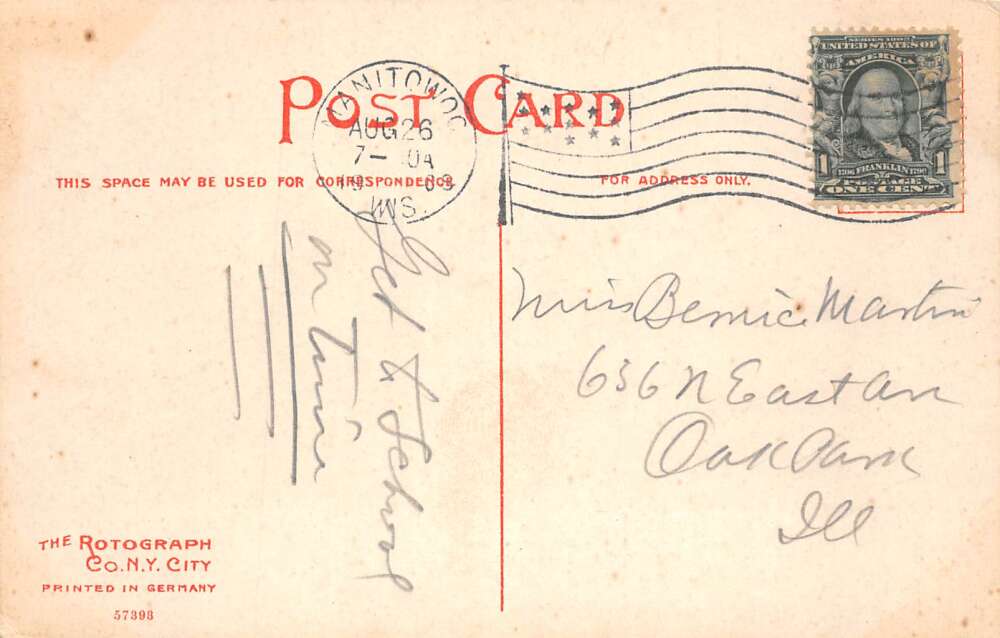 POST CARD
MANITOWOC
AUG 26
7- 30A
WIS.
SERIES 1902
UNITED STATES OF
AMERICA
1706 FRANKLIN 1790
POSTAGE
1 ONE CENT 1
THIS SPACE MAY BE USED FOR CORRESPONDENCE
FOR ADDRESS ONLY.
Get to School
on time
Miss Bernice Martin
636 N East Av
Oak Park
Ill
THE ROTOGRAPH
CO. N.Y. CITY
PRINTED IN GERMANY
57398